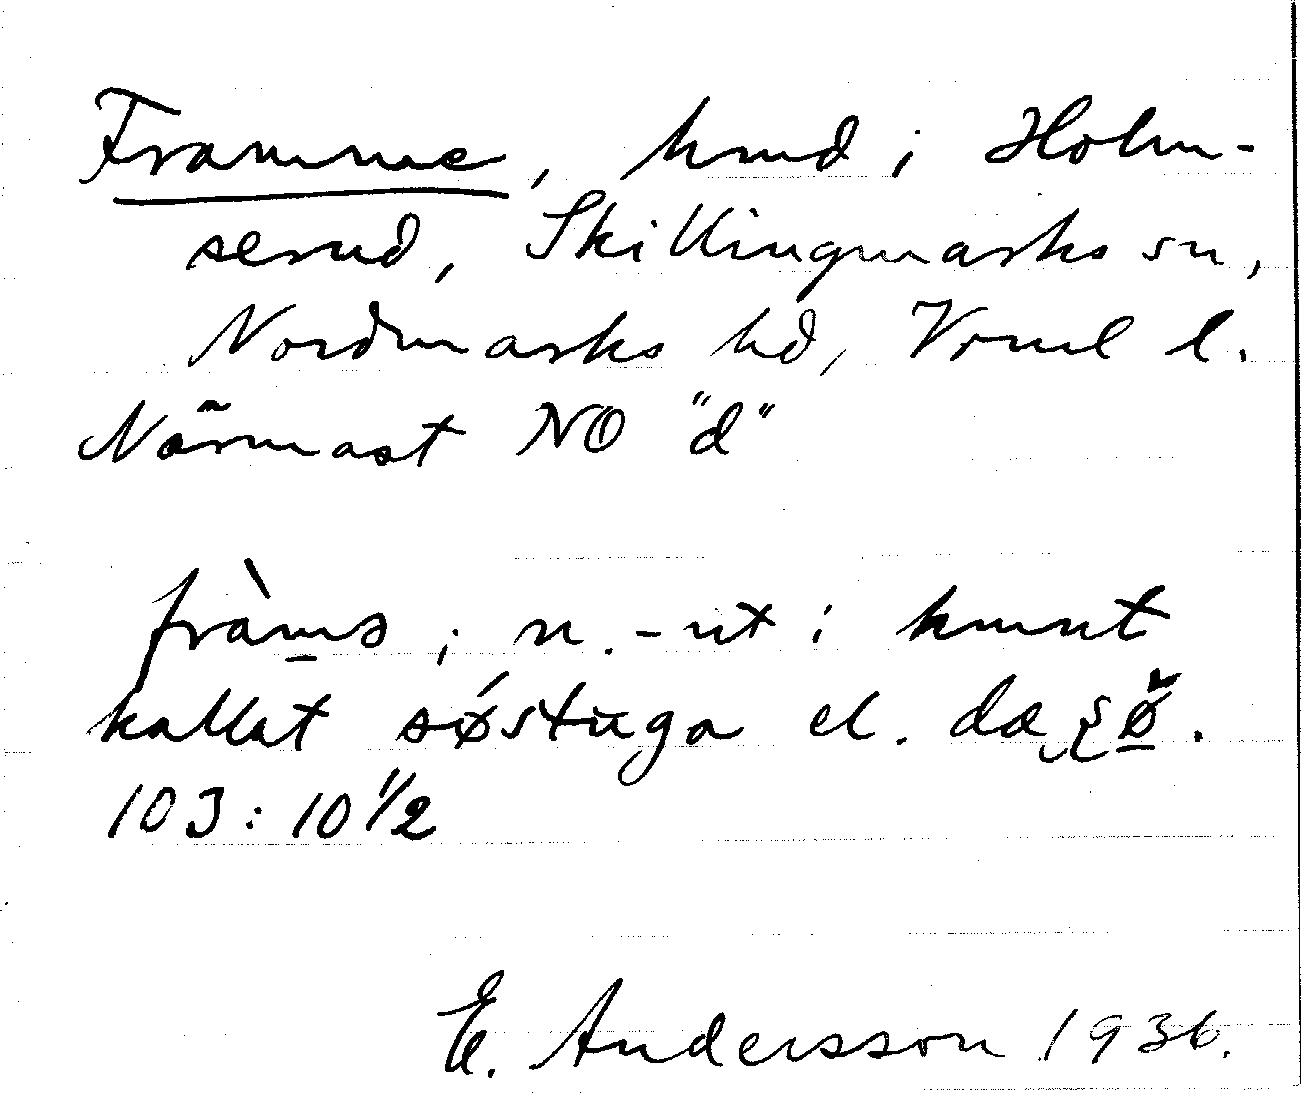 Framme, hmd i Holm-
serud, Skillingmarks sn,
Nordmarks hd, Vrml l.
Närmast NO "d"
fràmə; n. -ut i kmnt
kallat søstuga el. da
103:10 1/2
E. Andersson 1936.